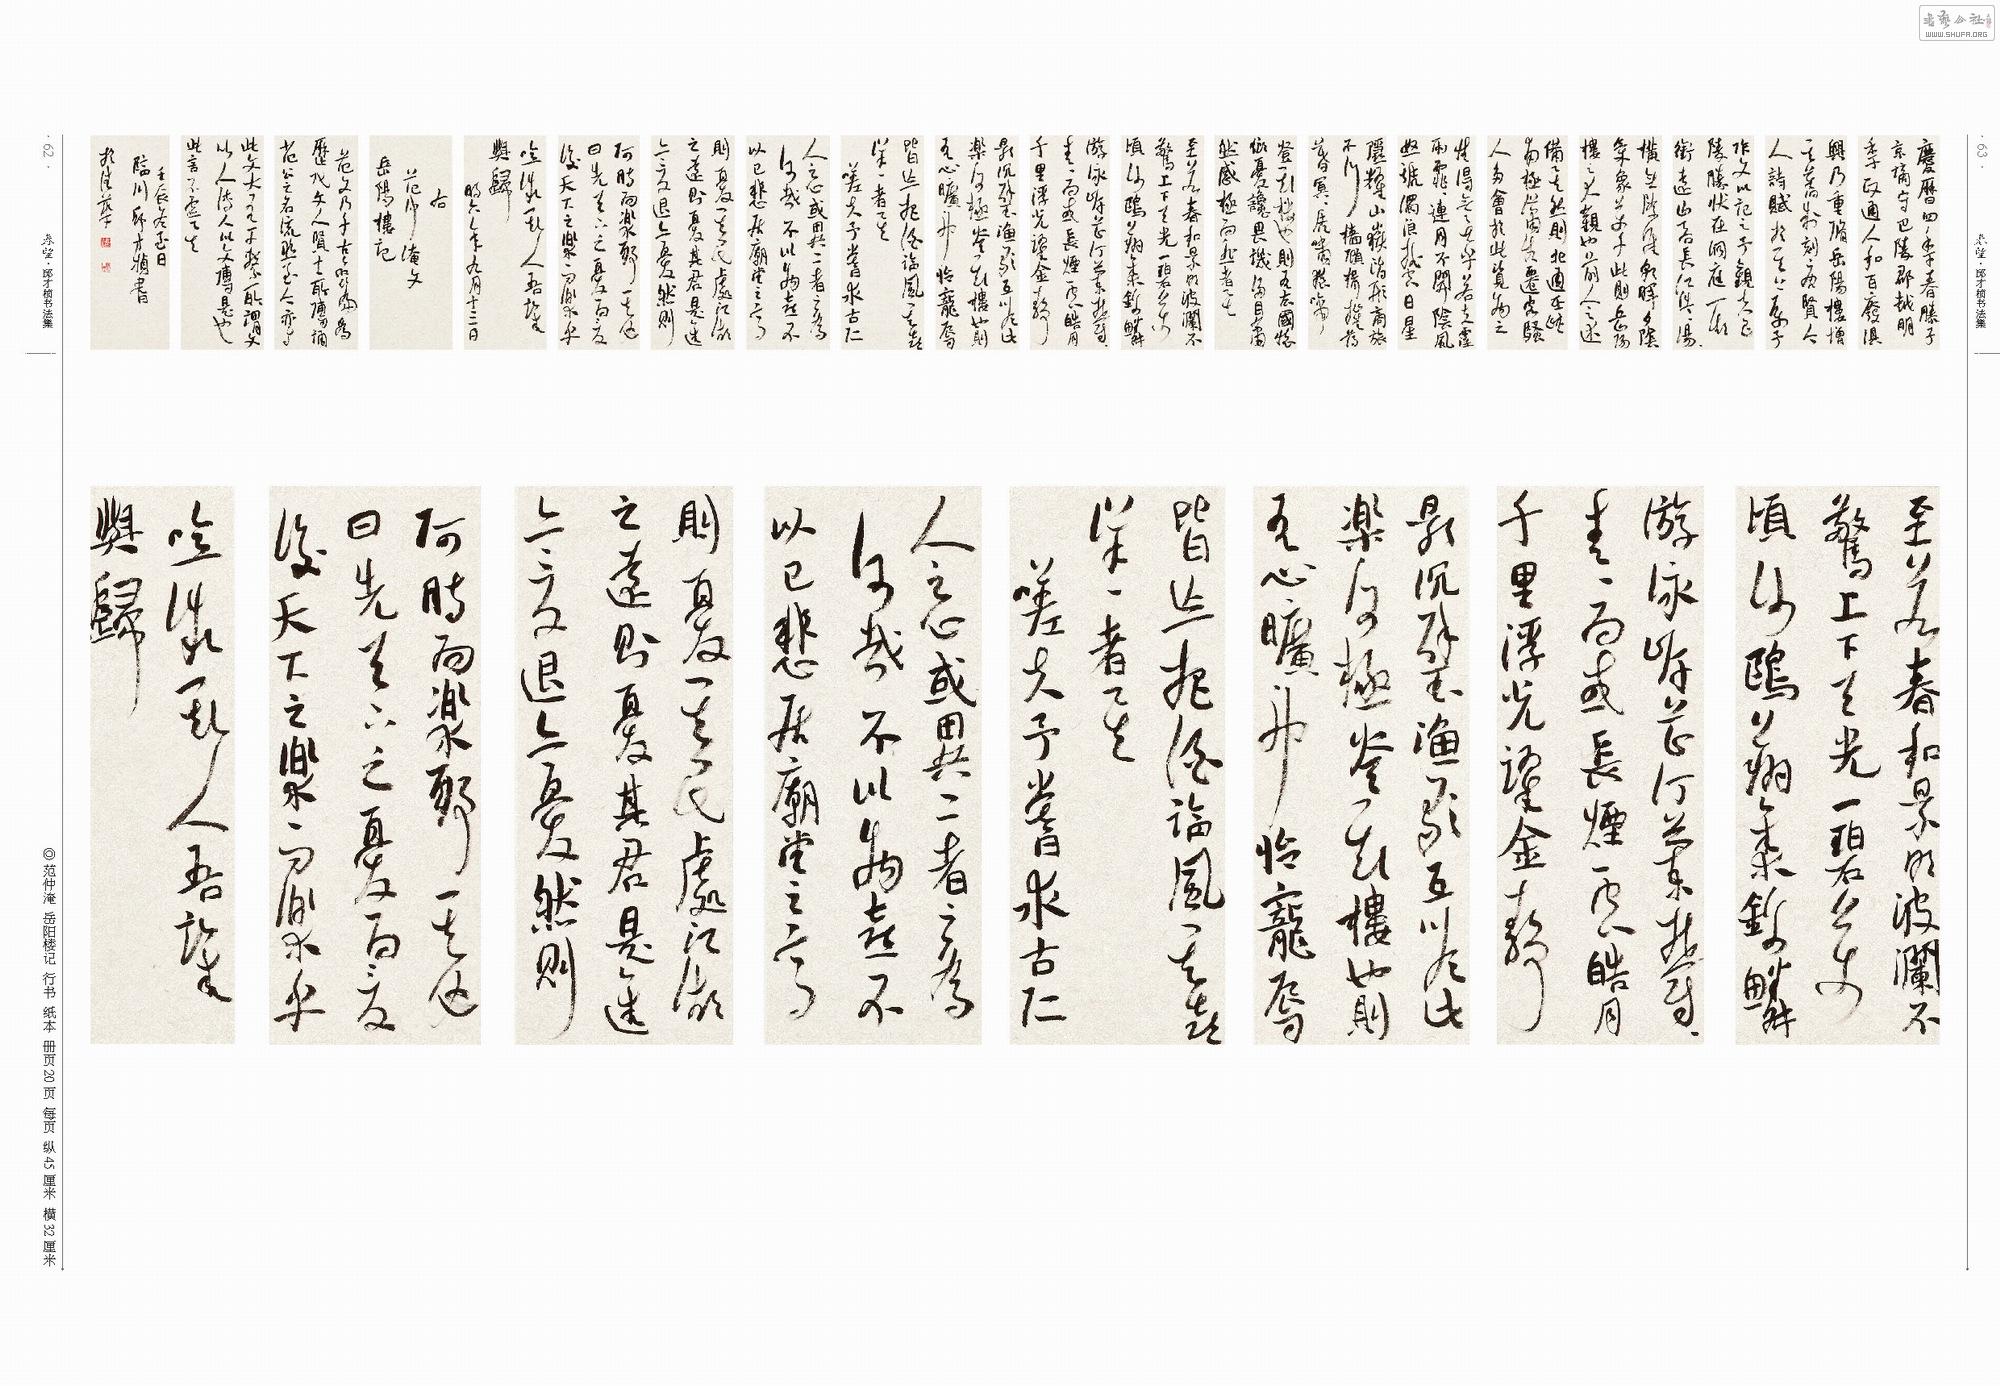 慶曆四年春滕子
京謫守巴陵郡越明
年政通人和百廢俱
興乃重脩岳陽樓增
其舊制刻唐賢今
人詩賦於其上属予
作文以記之予觀夫巴
陵勝狀在洞庭一湖
銜遠山吞長江浩浩湯湯
橫無際涯朝暉夕陰
氣象万千此則岳陽
樓之大觀也前人之述
備矣然則北通巫峽
南極瀟湘遷客騷
人多會於此覽物之
情得無異乎若夫霪
雨霏霏連月不開陰風
怒號濁浪排空日星
隱耀山嶽潛形商旅
不行檣傾楫摧薄
暮冥冥虎嘯猿啼
登斯樓也則有去國懷
鄉憂讒畏譏滿目蕭
然感極而悲者矣
至若春和景明波瀾不
驚上下天光一碧萬
頃沙鷗翔集錦鱗
游泳岸芷汀蘭郁郁
青青而或長煙一空皓月
千里浮光躍金静
影沉璧漁歌互答此
樂何極登斯樓也則
有心曠神怡寵辱
皆忘把酒臨風其喜
洋洋者矣
嗟夫予嘗求古仁
人之心或異二者之為
何哉不以物喜不
以己悲居廟堂之高
則憂其民處江湖
之遠則憂其君是進
亦憂退亦憂然則
何時而樂耶其必
曰先天下之憂而憂
後天下之樂而樂乎
噫微斯人吾誰
與歸
時六年九月十五日
右
范仲淹文
岳陽樓記
范文乃千古名篇為
歷代文人賢士所傳誦
此文大有干繫所謂文
以人傳人以文傳是也
此言不虛矣
壬辰冬至日
臨川邱才楨書
至若春和景明波瀾不
驚上下天光一碧萬
頃沙鷗翔集錦鱗
游泳岸芷汀蘭郁郁
青青而或長煙一空皓月
千里浮光躍金静
影沉璧漁歌互答此
樂何極登斯樓也則
有心曠神怡寵辱
皆忘把酒臨風其喜
洋洋者矣
嗟夫予嘗求古仁
人之心或異二者之為
何哉不以物喜不
以己悲居廟堂之高
則憂其民處江湖
之遠則憂其君是進
亦憂退亦憂然則
何時而樂耶其必
曰先天下之憂而憂
後天下之樂而樂乎
噫微斯人吾誰
與歸
◎范仲淹 岳阳楼记 行书 纸本 册页20页 每页 纵45厘米 横32厘米
·62·
邱才桢书法集
·63·
邱才桢书法集
书艺公社
WWW.SHUFA.ORG